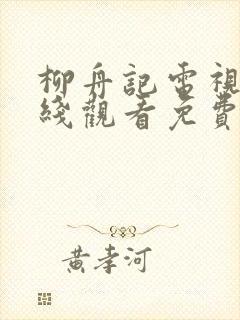 柳舟記電視
綫觀看免費
黃孝河